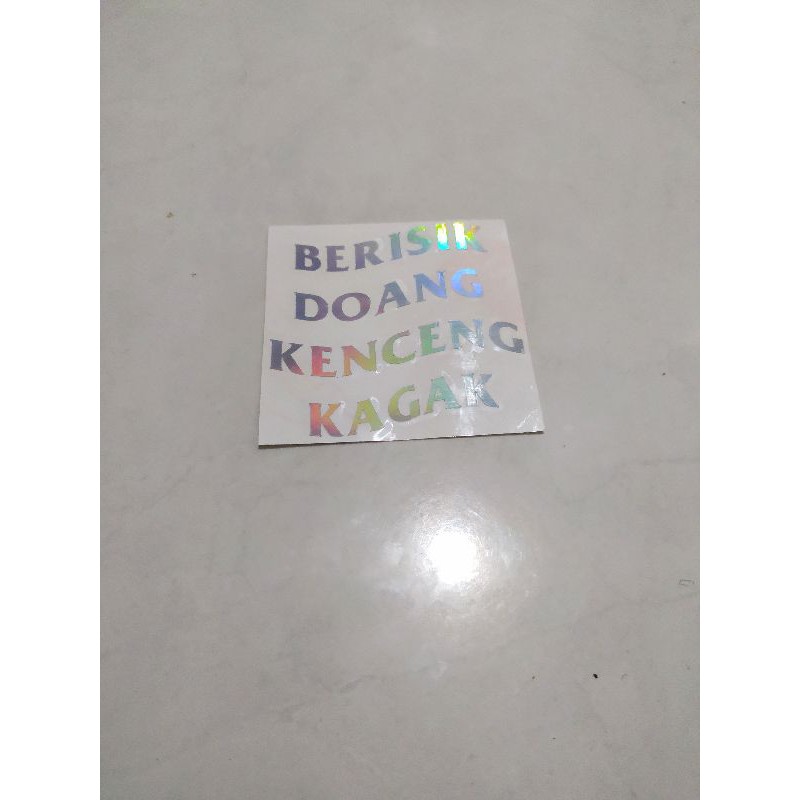 BERISIK
DOANG
KENCENG
KAGAK